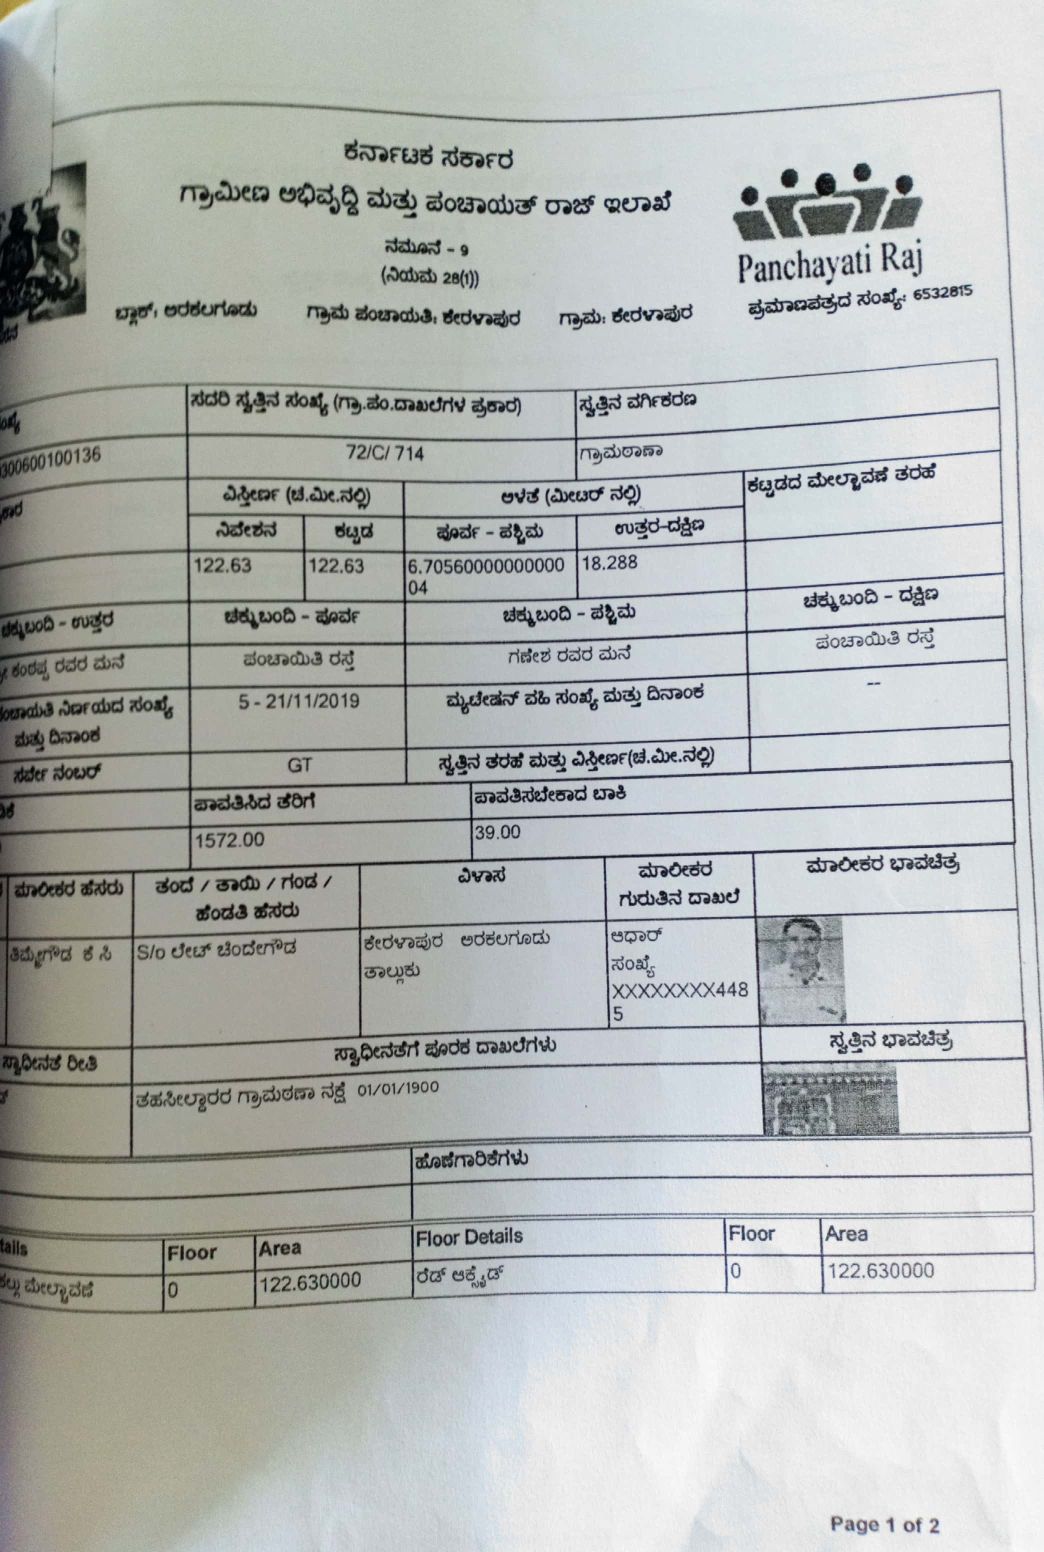 ಕರ್ನಾಟಕ ಸರ್ಕಾರ
ಗ್ರಾಮೀಣ ಅಭಿವೃದ್ಧಿ ಮತ್ತು ಪಂಚಾಯತ್ ರಾಜ್ ಇಲಾಖೆ
ನಮೂನೆ - 9
(ನಿಯಮ 28(1))
Panchayati Raj
ಬ್ಲಾಕ್: ಅರಕಲಗೂಡು ಗ್ರಾಮ ಪಂಚಾಯತಿ: ಕೇರಳಾಪುರ ಗ್ರಾಮ: ಕೇರಳಾಪುರ ಪ್ರಮಾಣಪತ್ರದ ಸಂಖ್ಯೆ: 6532815
ಸದರಿ ಸ್ವತ್ತಿನ ಸಂಖ್ಯೆ (ಗ್ರಾ.ಪಂ.ದಾಖಲೆಗಳ ಪ್ರಕಾರ) ಸ್ವತ್ತಿನ ವರ್ಗಿಕರಣ
300600100136 72/C/ 714 ಗ್ರಾಮಠಾಣಾ
ವಿಸ್ತೀರ್ಣ (ಚ.ಮೀ.ನಲ್ಲಿ) ಅಳತೆ (ಮೀಟರ್ ನಲ್ಲಿ) ಕಟ್ಟಡದ ಮೇಲ್ಚಾವಣೆ ತರಹೆ
ನಿವೇಶನ ಕಟ್ಟಡ ಪೂರ್ವ - ಪಶ್ಚಿಮ ಉತ್ತರ-ದಕ್ಷಿಣ
122.63 122.63 6.70560000000000 18.288
04
ಚಕ್ಕುಬಂದಿ - ಉತ್ತರ ಚಕ್ಕುಬಂದಿ - ಪೂರ್ವ ಚಕ್ಕುಬಂದಿ - ಪಶ್ಚಿಮ ಚಕ್ಕುಬಂದಿ - ದಕ್ಷಿಣ
ರವರ ಮನೆ ಪಂಚಾಯಿತಿ ರಸ್ತೆ ಗಣೇಶ ರವರ ಮನೆ ಪಂಚಾಯಿತಿ ರಸ್ತೆ
ನಿರ್ಣಯದ ಸಂಖ್ಯೆ 5 - 21/11/2019 ಮ್ಯಟೇಷನ್ ವಹಿ ಸಂಖ್ಯೆ ಮತ್ತು ದಿನಾಂಕ --
ಮತ್ತು ದಿನಾಂಕ
ಸರ್ವೇ ನಂಬರ್ GT ಸ್ವತ್ತಿನ ತರಹೆ ಮತ್ತು ವಿಸ್ತೀರ್ಣ(ಚ.ಮೀ.ನಲ್ಲಿ)
ಪಾವತಿಸಿದ ತೆರಿಗೆ ಪಾವತಿಸಬೇಕಾದ ಬಾಕಿ
1572.00 39.00
ಮಾಲೀಕರ ಹೆಸರು ತಂದೆ / ತಾಯಿ / ಗಂಡ / ವಿಳಾಸ ಮಾಲೀಕರ ಮಾಲೀಕರ ಭಾವಚಿತ್ರ
ಹೆಂಡತಿ ಹೆಸರು ಗುರುತಿನ ದಾಖಲೆ
ತಿಮ್ಮೇಗೌಡ ಕೆ ಸಿ S/o ಲೇಟ್ ಚಿಂದೇಗೌಡ ಕೇರಳಾಪುರ ಅರಕಲಗೂಡು ಆಧಾರ್
ತಾಲ್ಲುಕು ಸಂಖ್ಯೆ
XXXXXXXX448
5
ಸ್ವಾಧೀನತೆ ರೀತಿ ಸ್ವಾಧೀನತೆಗೆ ಪೂರಕ ದಾಖಲೆಗಳು ಸ್ವತ್ತಿನ ಭಾವಚಿತ್ರ
ತಹಸೀಲ್ದಾರರ ಗ್ರಾಮಠಣಾ ನಕ್ಷೆ 01/01/1900
ಹೊಣೆಗಾರಿಕೆಗಳು
Floor Area Floor Details Floor Area
ಮೇಲ್ಚಾವಣಿ 0 122.630000 ರೆಡ್ ಆಕ್ಸೈಡ್ 0 122.630000
Page 1 of 2